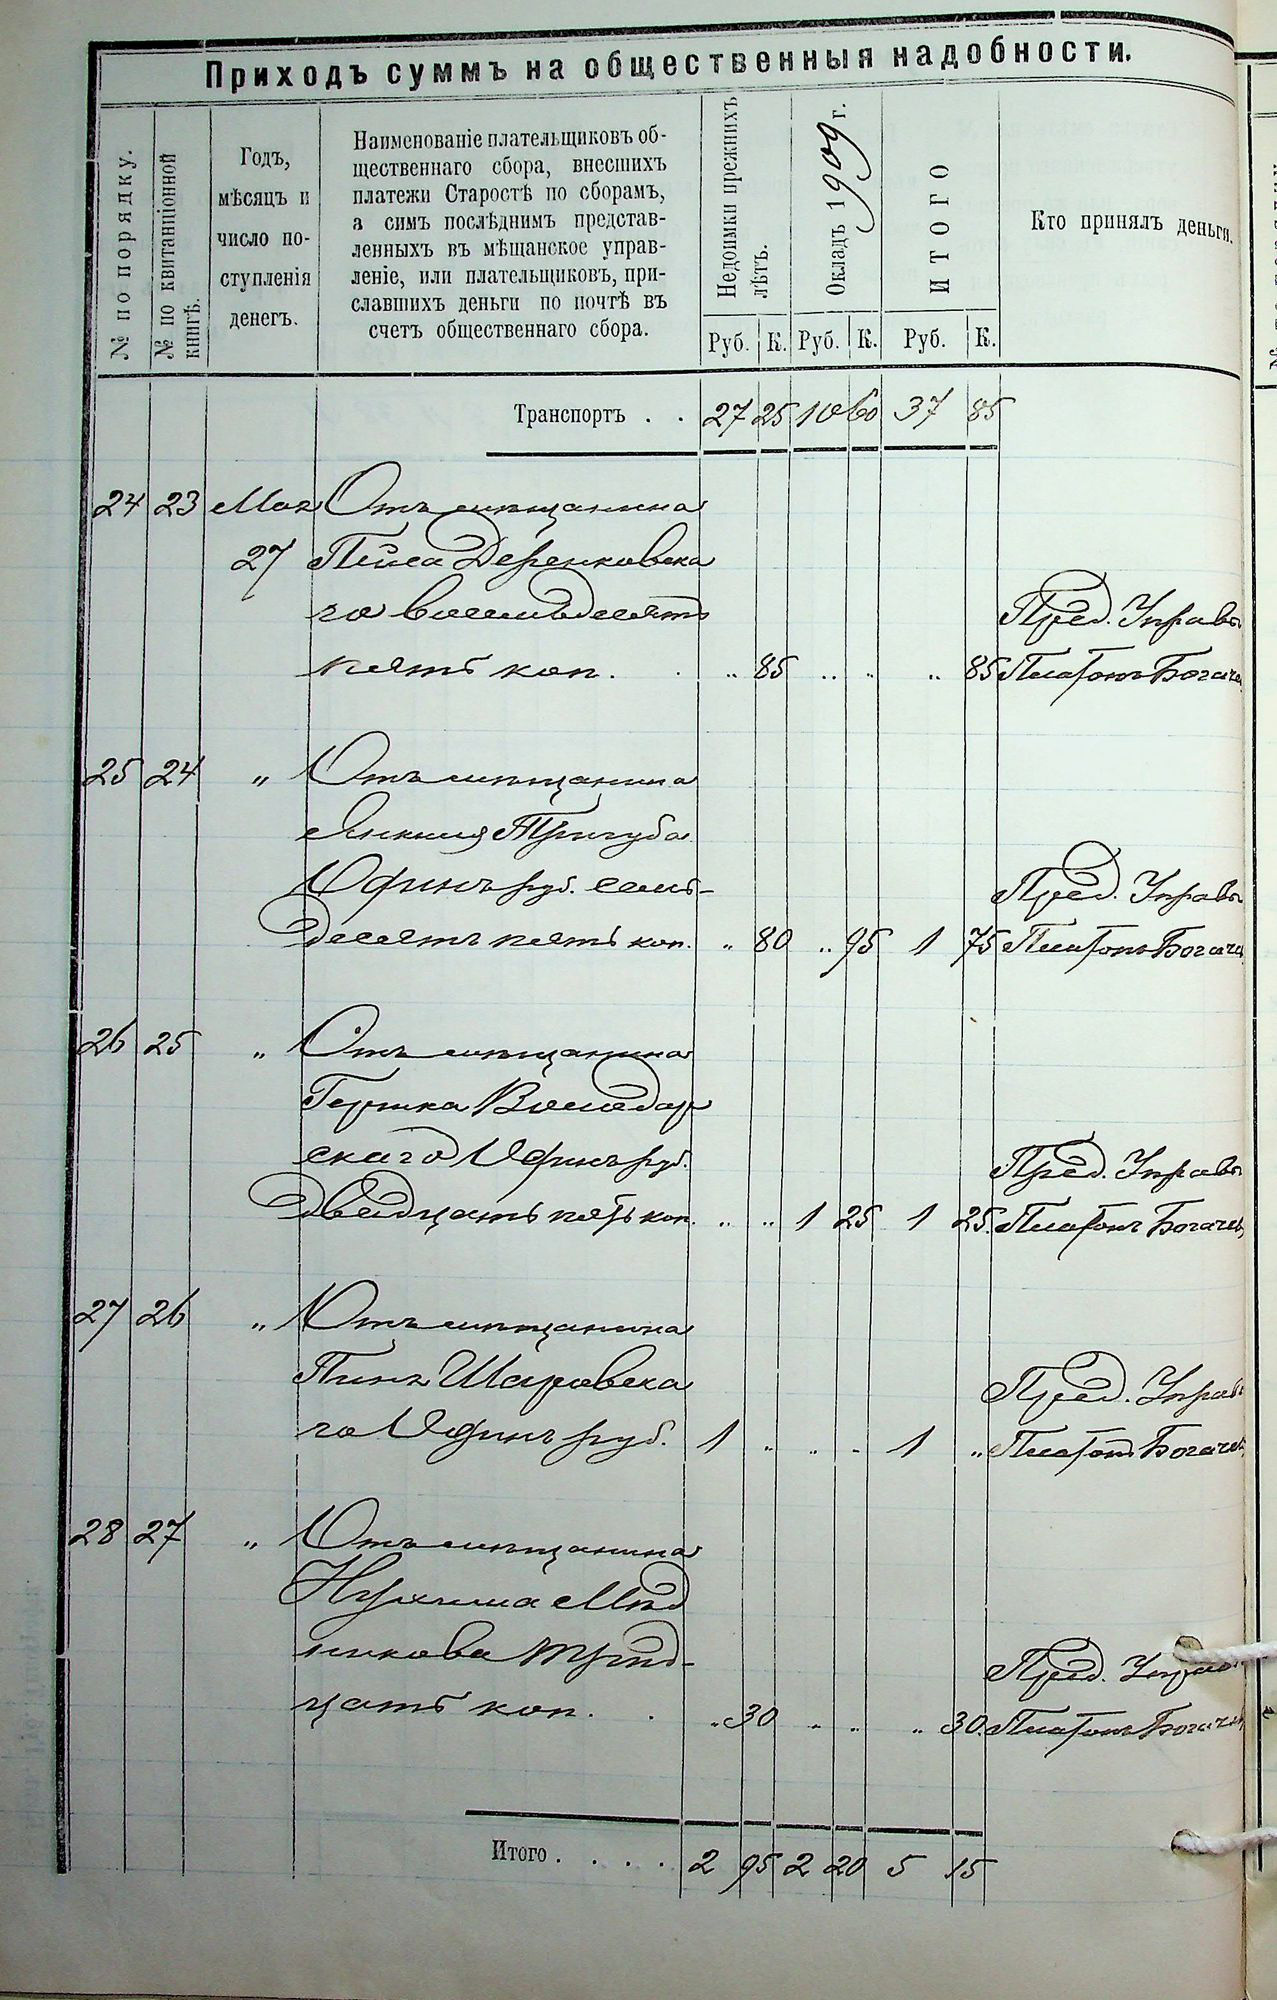 Приходъ суммъ на общественныя надобности.
№ по порядку.
№ по квитанціонной книгѣ.
Годъ,
мѣсяцъ и
число по-
ступленія
денегъ.
Наименованіе плательщиковъ об-
щественнаго сбора, внесшихъ
платежи Старостѣ по сборамъ,
а симъ послѣднимъ представ-
ленныхъ въ мѣщанское управ-
леніе, или плательщиковъ, при-
славшихъ деньги по почтѣ въ
счетъ общественнаго сбора.
Недоимки прежнихъ лѣтъ.
Окладъ 1909 г.
ИТОГО
Кто принялъ деньги.
Руб. К. Руб. К. Руб. К.
Транспортъ . . 27 25 10 60 37 85
24 23 Мая Отъ мѣщанина
27 Пейса Деренковска
го восемьдесятъ Пред. Управы
пять коп. . „ 85 „ „ „ 85 Платонъ Богаче
25 24 „ Отъ мѣщанина
Янкеля Тригуба
Одинъ руб. семь- Пред. Управы
десятъ пять коп. „ 80 „ 95 1 75 Платонъ Богаче
26 25 „ Отъ мѣщанина
Гершка Володар
скаго Одинъ руб. Пред. Управы
двадцать пять коп. „ „ 1 25 1 25. Платонъ Богаче
27 26 „ Отъ мѣщанина
Шаровска Пред. Управы
го Одинъ руб. 1 „ „ „ 1 „ Платонъ Богаче
28 27 „ Отъ мѣщанина
Нухима Мѣд
никова трид- Пред. Управы
цать коп. . . „ 30 „ „ „ 30. Платонъ Богаче
Итого . . . . 2 95 2 20 5 15